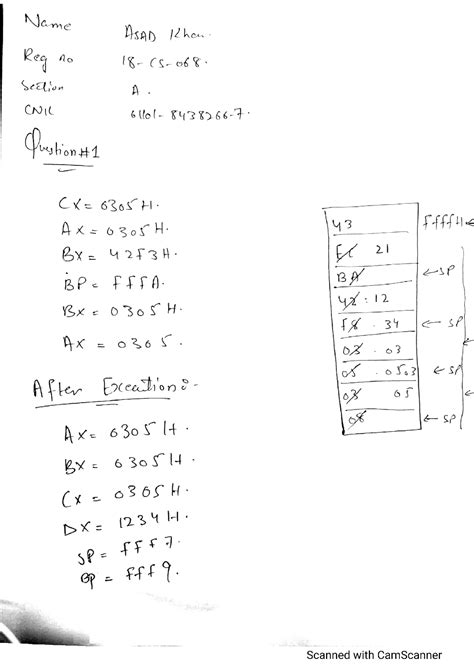 Name ASAD Khan.
Reg no 18-CS-068.
Section A.
CNIC 61101-8438266-7.
Question#1
CX = 0305H.
AX = 0305H.
BX = 42F3H.
BP = FFFA.
BX = 0305H.
AX = 0305.
43 ffffH
21
BA SP
42 : 12
f8 . 34 SP
03 . 03
05 . 0503 SP
03 05
08 SP
After Execution:-
AX = 0305H.
BX = 0305H.
CX = 0305H.
DX = 1234H.
SP = fff7.
BP = fff9.
Scanned with CamScanner